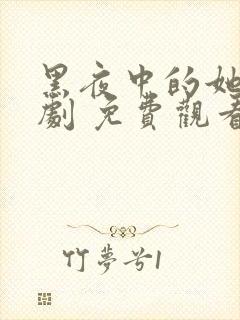 黑夜中的她
劇 免費觀看
竹夢兮1